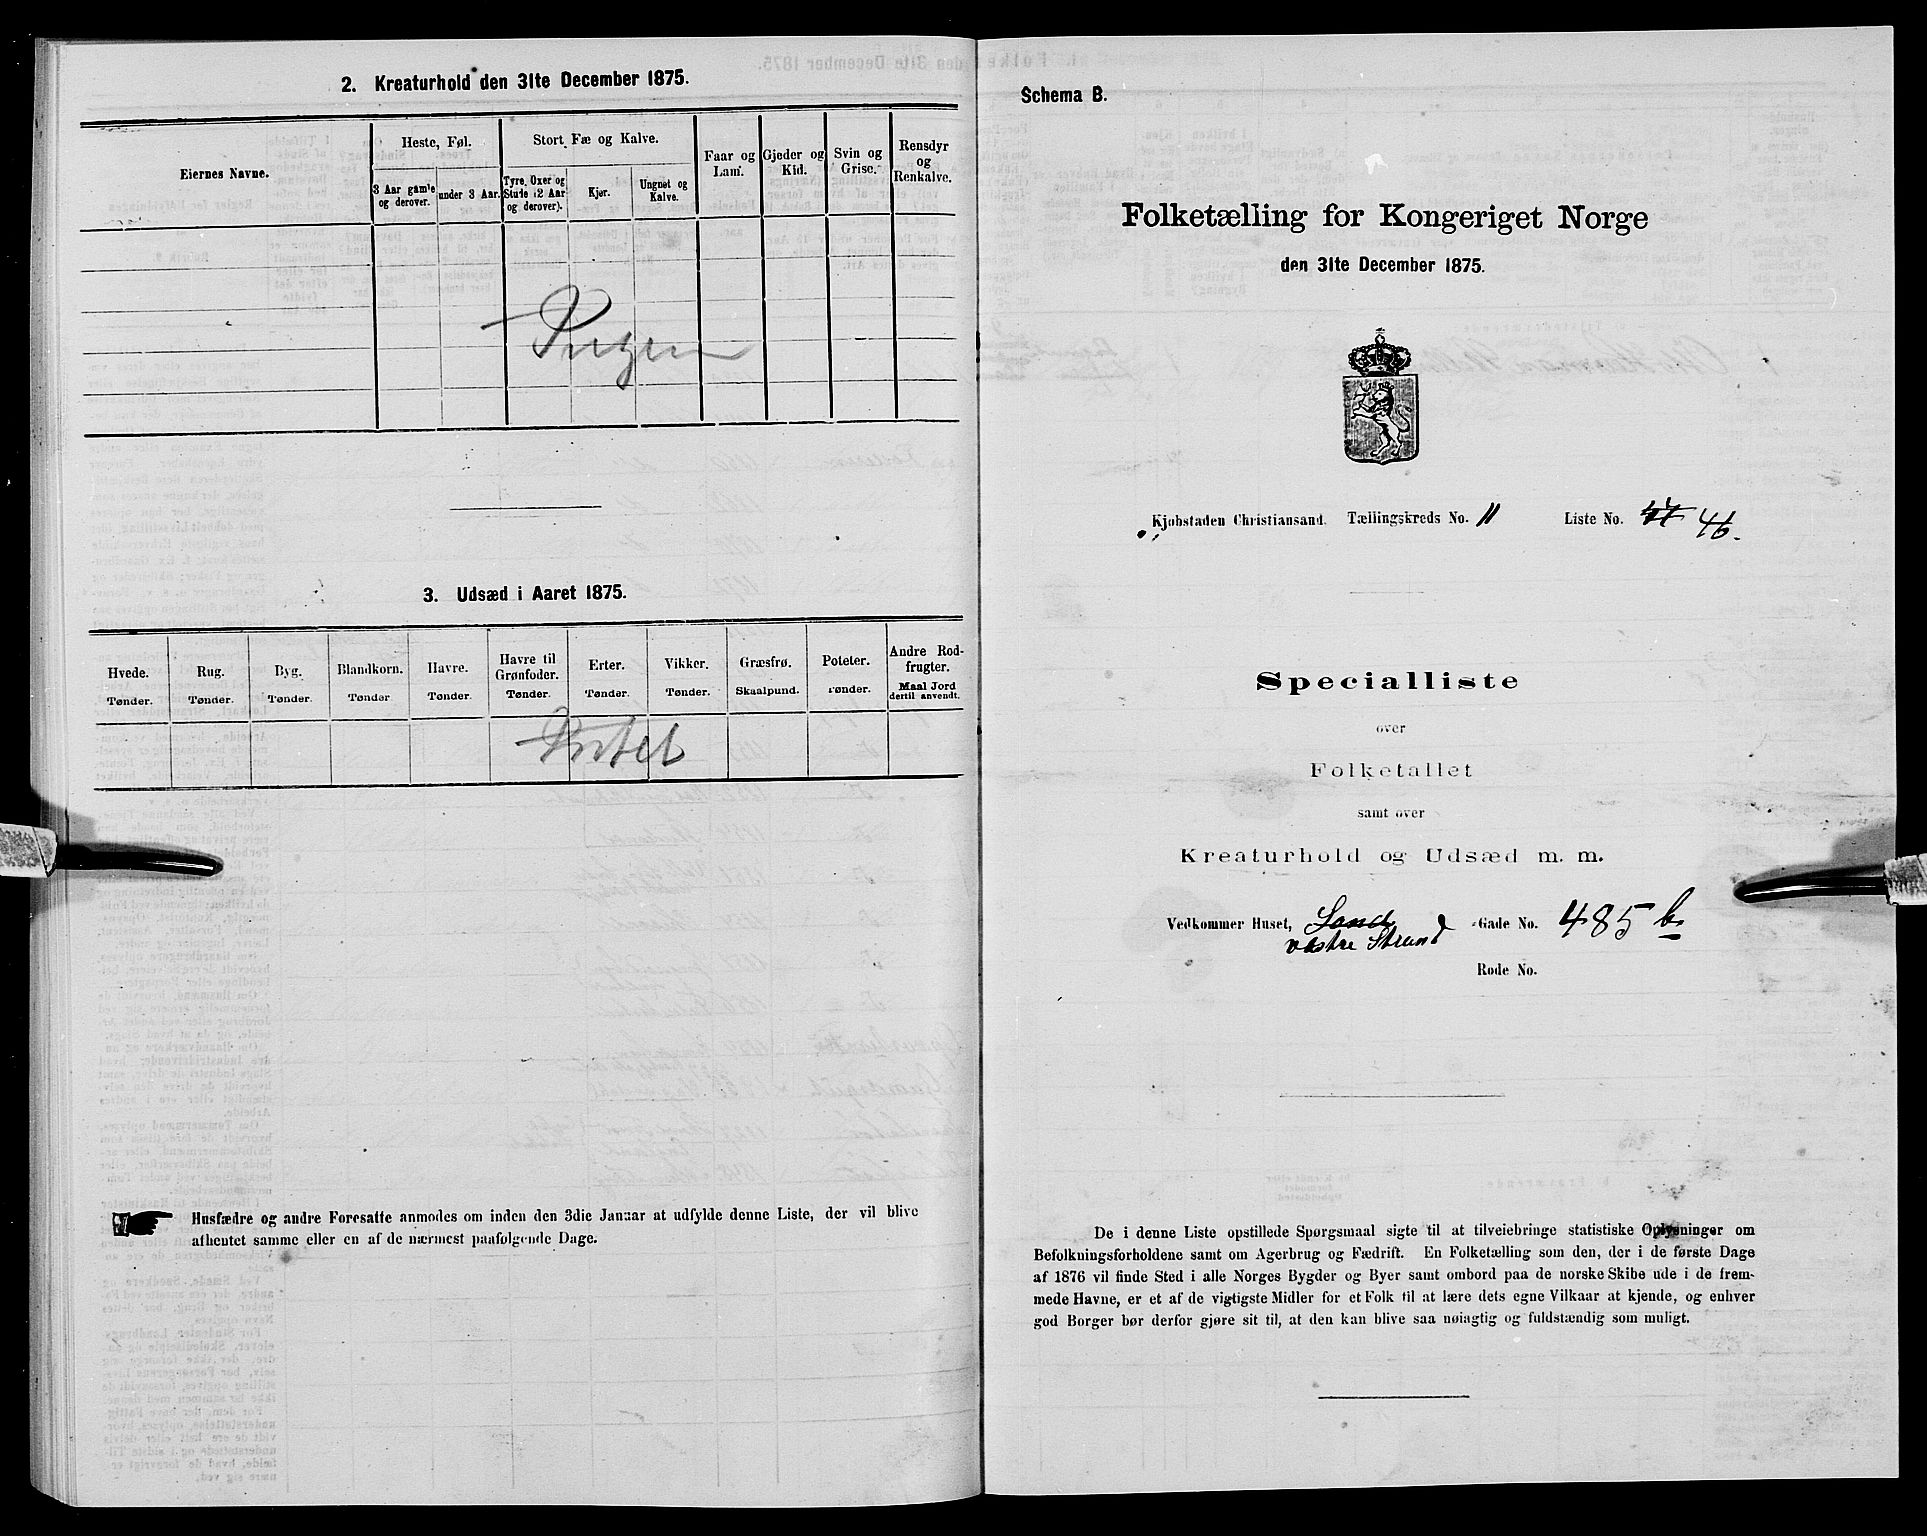 2. Kreaturhold den 31te December 1875.
Eiernes Navne.
Heste, Føl.
Stort Fæ og Kalve.
Faar og Lam.
Gjeder og Kid.
Svin og Grise.
Rensdyr og Renkalve.
3 Aar gamle og derover.
under 3 Aar.
Tyre, Oxer og Stude (2 Aar og derover).
Kjør.
Ungnøt og Kalve.
Ingen
3. Udsæd i Aaret 1875.
Hvede. Tønder.
Rug. Tønder.
Byg. Tønder.
Blandkorn. Tønder.
Havre. Tønder.
Havre til Grønfoder. Tønder.
Erter. Tønder.
Vikker. Tønder.
Græsfrø. Skaalpund.
Poteter. Tønder.
Andre Rodfrugter. Maal Jord dertil anvendt.
Intet
Husfædre og andre Foresatte anmodes om inden den 3die Januar at udfylde denne Liste, der vil blive
afhentet samme eller en af de nærmest paafølgende Dage.
Schema B.
Folketælling for Kongeriget Norge
den 31te December 1875.
Kjøbstaden Christiansand. Tællingskreds No. 11 Liste No. 46.
Specialliste
over
Folketallet
samt over
Kreaturhold og Udsæd m. m.
Vedkommer Huset, Sand Gade No. 485 b
vestre Strand
Rode No.
De i denne Liste opstillede Spørgsmaal sigte til at tilveiebringe statistiske Oplysninger om
Befolkningsforholdene samt om Agerbrug og Fædrift. En Folketælling som den, der i de første Dage
af 1876 vil finde Sted i alle Norges Bygder og Byer samt ombord paa de norske Skibe ude i de frem-
mede Havne, er et af de vigtigste Midler for et Folk til at lære dets egne Vilkaar at kjende, og enhver
god Borger bør derfor gjøre sit til, at den kan blive saa nøiagtig og fuldstændig som muligt.